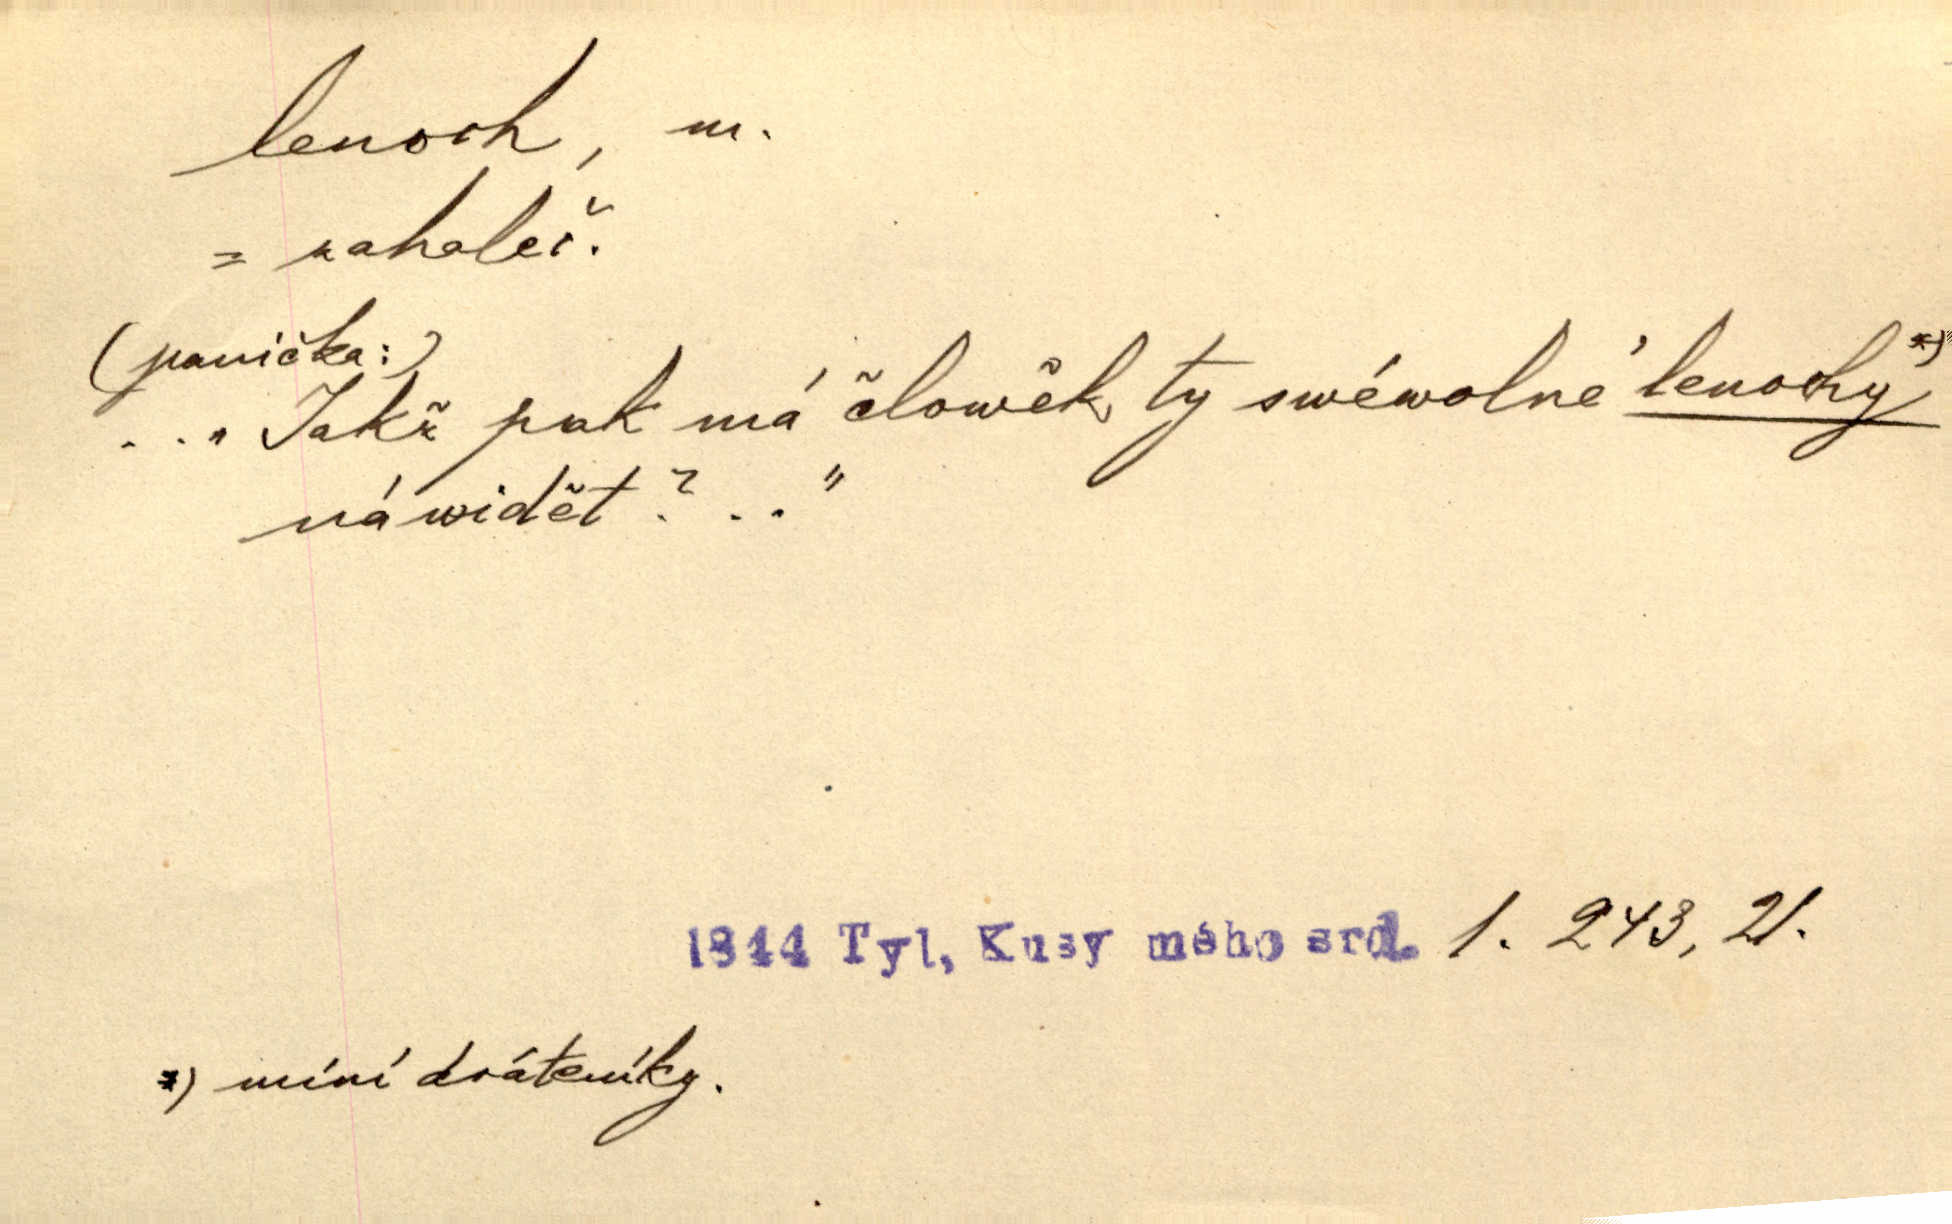 lenoch, m.
= zahaleč.
(panička:)
..„Jakž pak má človwěk ty swéwolné lenochy*)
náwidět? .."
1844 Tyl, Kusy mého srd. 1. 243, 21.
*) míní dráteníky.